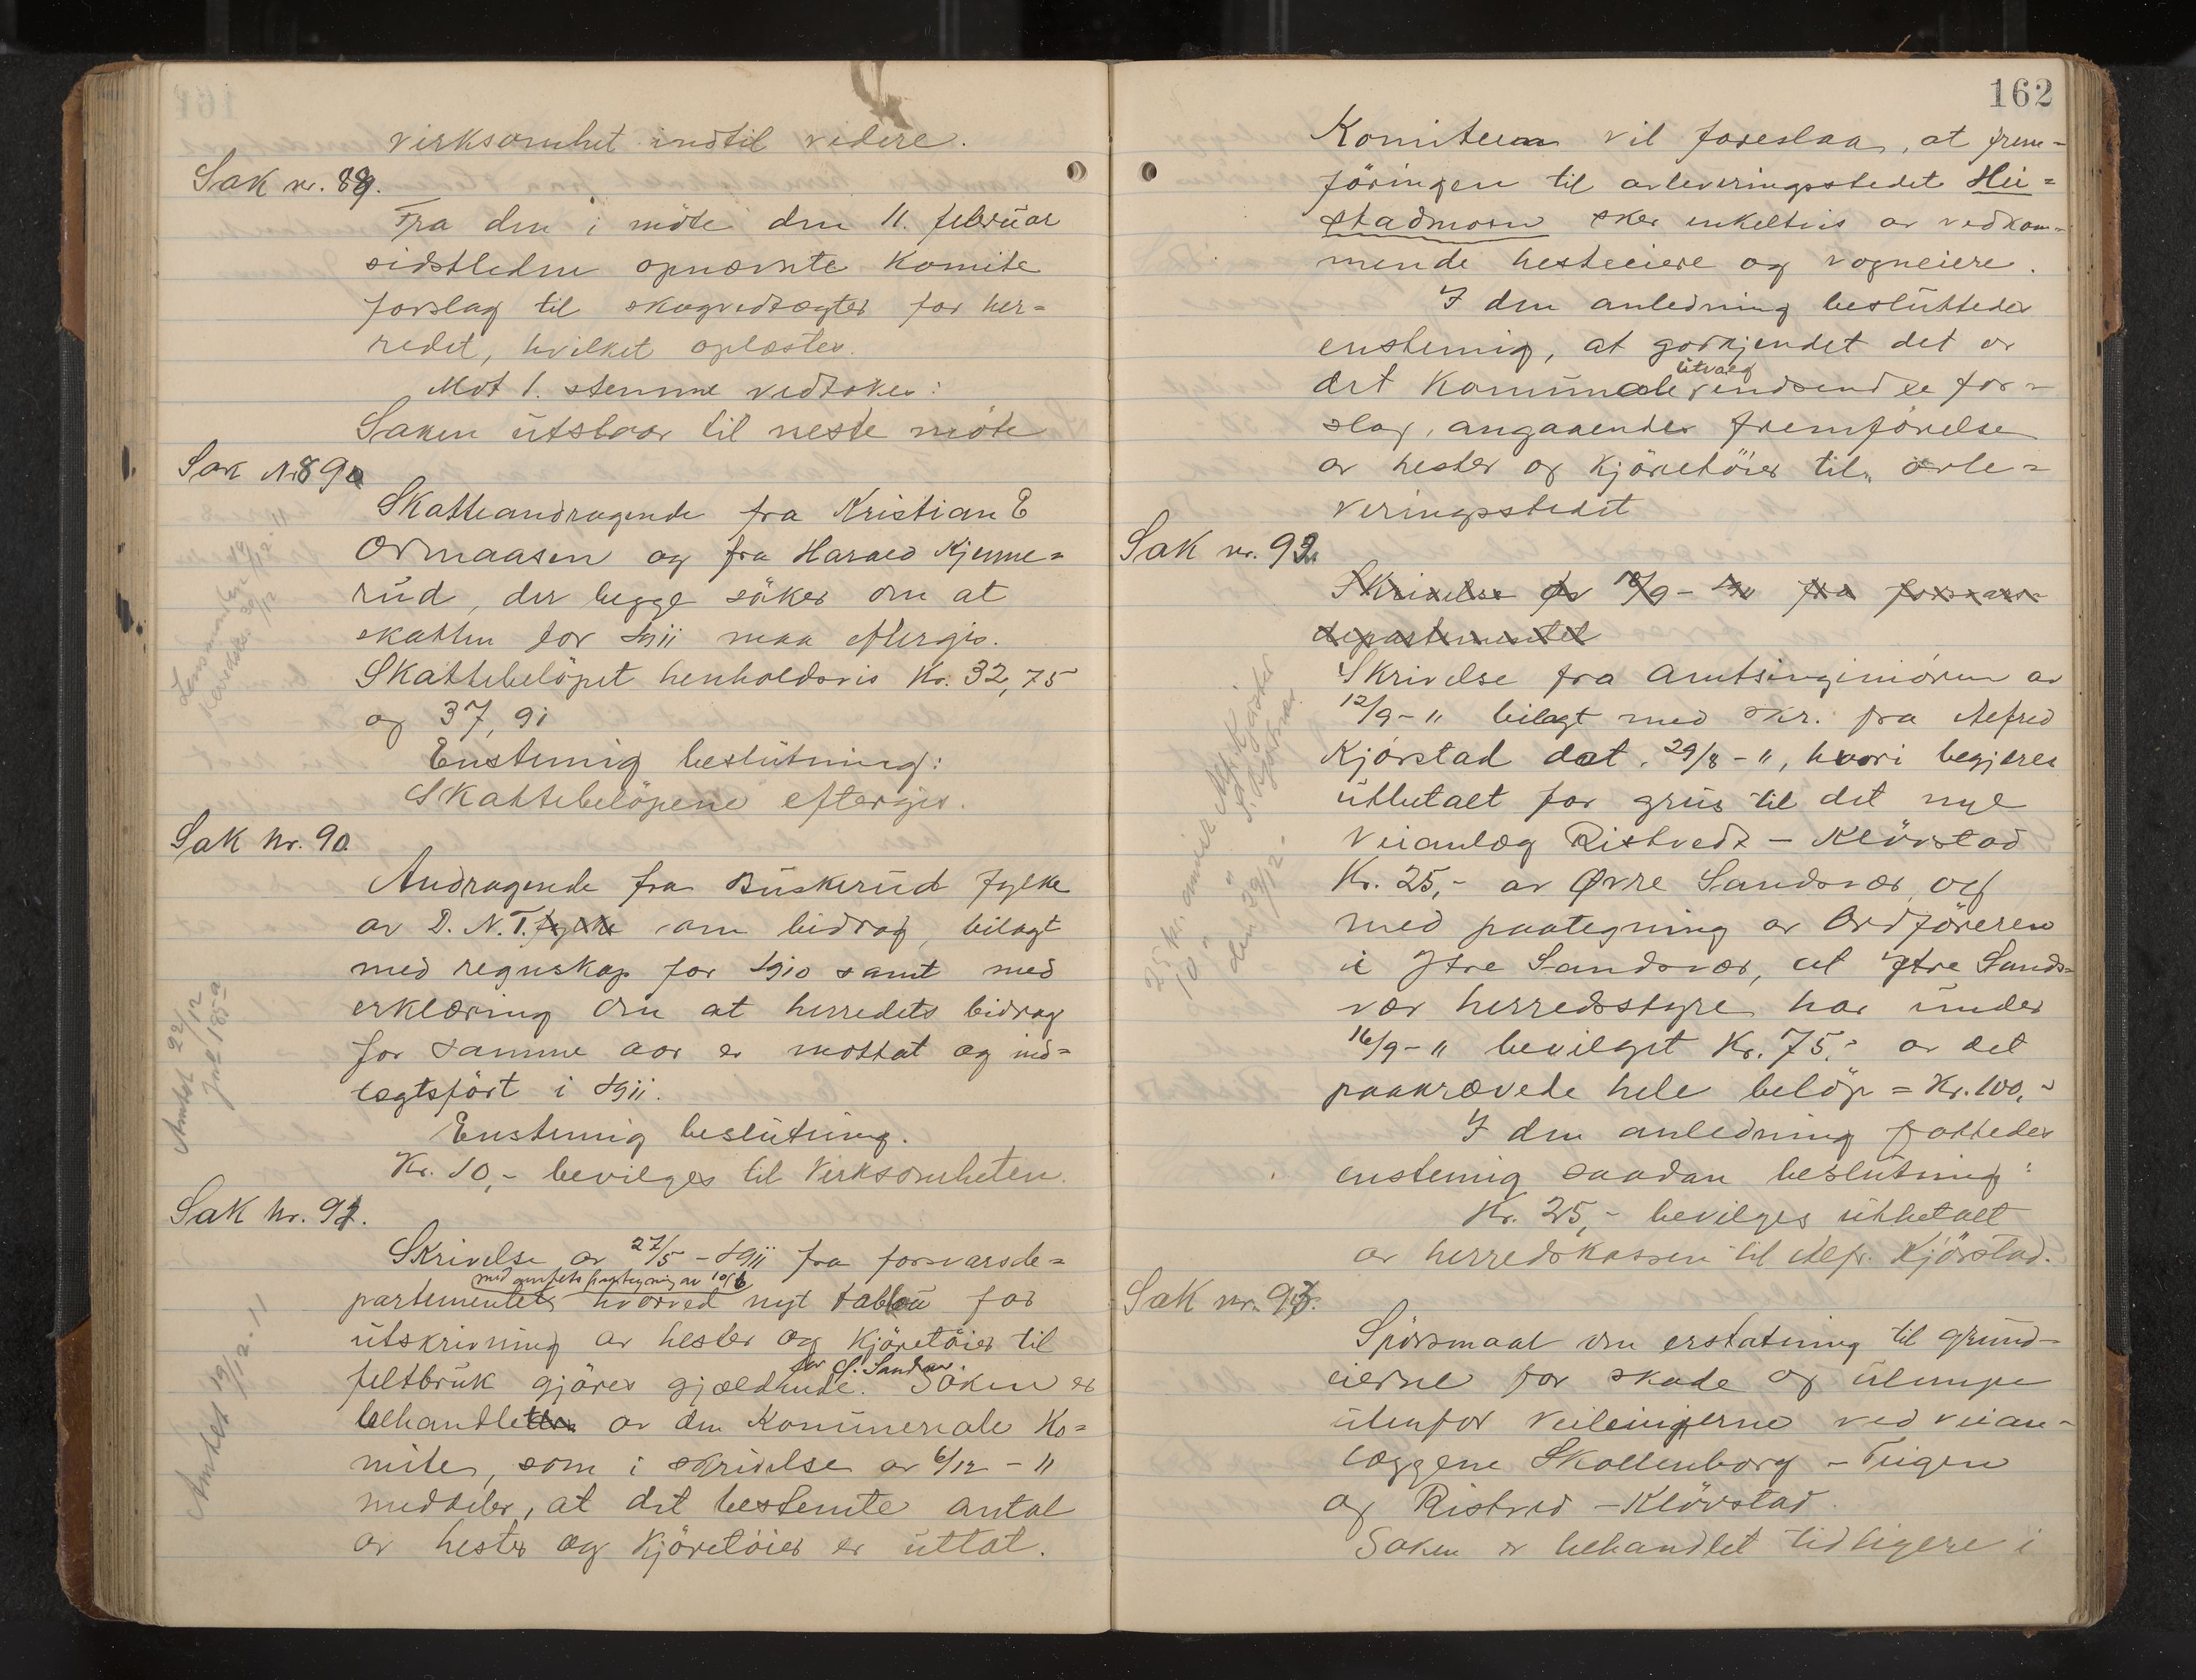 virksomhet indtil videre.
Sak nr. 89.
Fra den i möte den 11. februar
sidstleden opnævnte komite
forslag til skogvedtægter for her=
redet, hvilket oplæstes.
Mot 1. stemme vedtokes:
Saken utstaar til neste möte
Sak Nr 89a
Skatteandragende fra Kristian E
Ormaasen og fra Harald Kjenne=
rud, der begge söker om at
skatten for 1911 maa eftergis.
Skattebelöpet henholdsvis Kr. 32,75
og 37,91
Enstemig beslutning:
Skattebelöpene eftergis.
Lensmanden 14/12 11
Sak Nr. 90
Andragende fra Buskerud fylke
av D. N. T. fylke om bidrag, bilagt
med regnskap for 1910 samt med
erklæring om at herredets bidrag
for samme aar er mottat og ind=
tægtsført i 1911.
Enstemig beslutning.
Kr. 10,- bevilges til Virksomheten.
Amtet 22/12
Sak Nr. 91.
Skrivelse av 27/5 - 1911 fra forsvarsde=
med amtets paategning av 10/6
partementet hvorved nyt tablau for
utskrivning av hester og Kjöretöier til
for S. Sandsvær.
feltbruk gjöres gjældende. Saken er
behandlet av den Kommunale Ko=
mite, som i skrivelse av 6/12 - 11
meddeler, at det bestemte antal
av hester og Kjöretöier er uttat.
Amtet 19/12. 11
162
Komiteen vil foreslaa, at frem=
föringen til avleveringsstedet Hei=
stadmoen sker enkeltvis av vedkom=
mende hesteeiere og vogneiere.
I den anledning besluttedes
enstemig, at godkjendet det av
utvalg
det Kommunale indsendte for=
slag, angaaende fremförelse
av hester og Kjöretöier til avle=
veringsstedet
Sak nr. 92.
Skrivelse av 18/9 - 1911 fra forsvars
departementet
Skrivelse fra Amtsingeniören av
12/9 - 11 bilagt med skr. fra Alfred
Kjörstad dat. 29/8 - 11, hvori begjæres
utbetalt for grus til det nye
Veianlæg Ristvedt - Klörstad
Kr. 25,- av Øvre Sandsvær, og
med paategning av Ordföreren
i Ytre Sandsvær, at Ytre Sands=
vær herredsstyre har under
16/9 - 11 bevilget Kr. 75,- av det
paakrævede hele belöp = Kr. 100,-
I den anledning fattedes
enstemig saadan beslutning:
Kr. 25,- bevilges utbetalt
av herredskassen til Alfr. Kjörstad.
25 kr. anvist Alfr. Kjörstad
10 "
den 29/12 -
Sak nr. 93.
Spörsmaal om erstatning til grund=
eierne for skade og ulempe
utenfor veilinjerne ved veian=
læggene Skollenborg - Teigen
og Ristved - Klörstad.
Saken er behandlet tidligere i